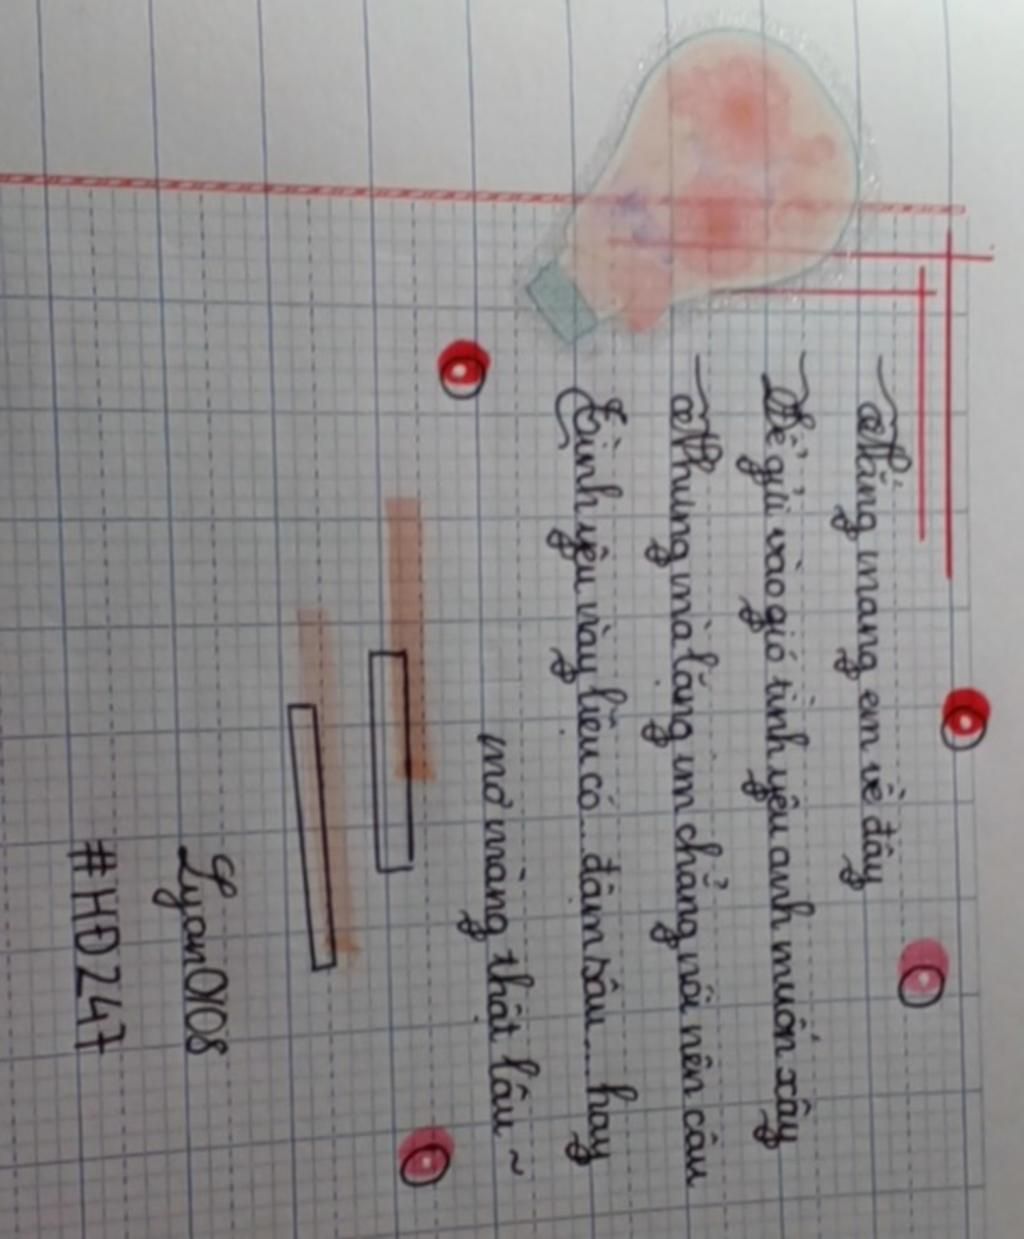 Nắng mang em về đây
Để gửi vào gió tình yêu anh muốn xây
Nhưng mà lặng im chẳng nói nên câu
Tình yêu này liệu có... đậm sâu... hay
mơ màng thật lâu ~
Lyan0108
#HĐ247